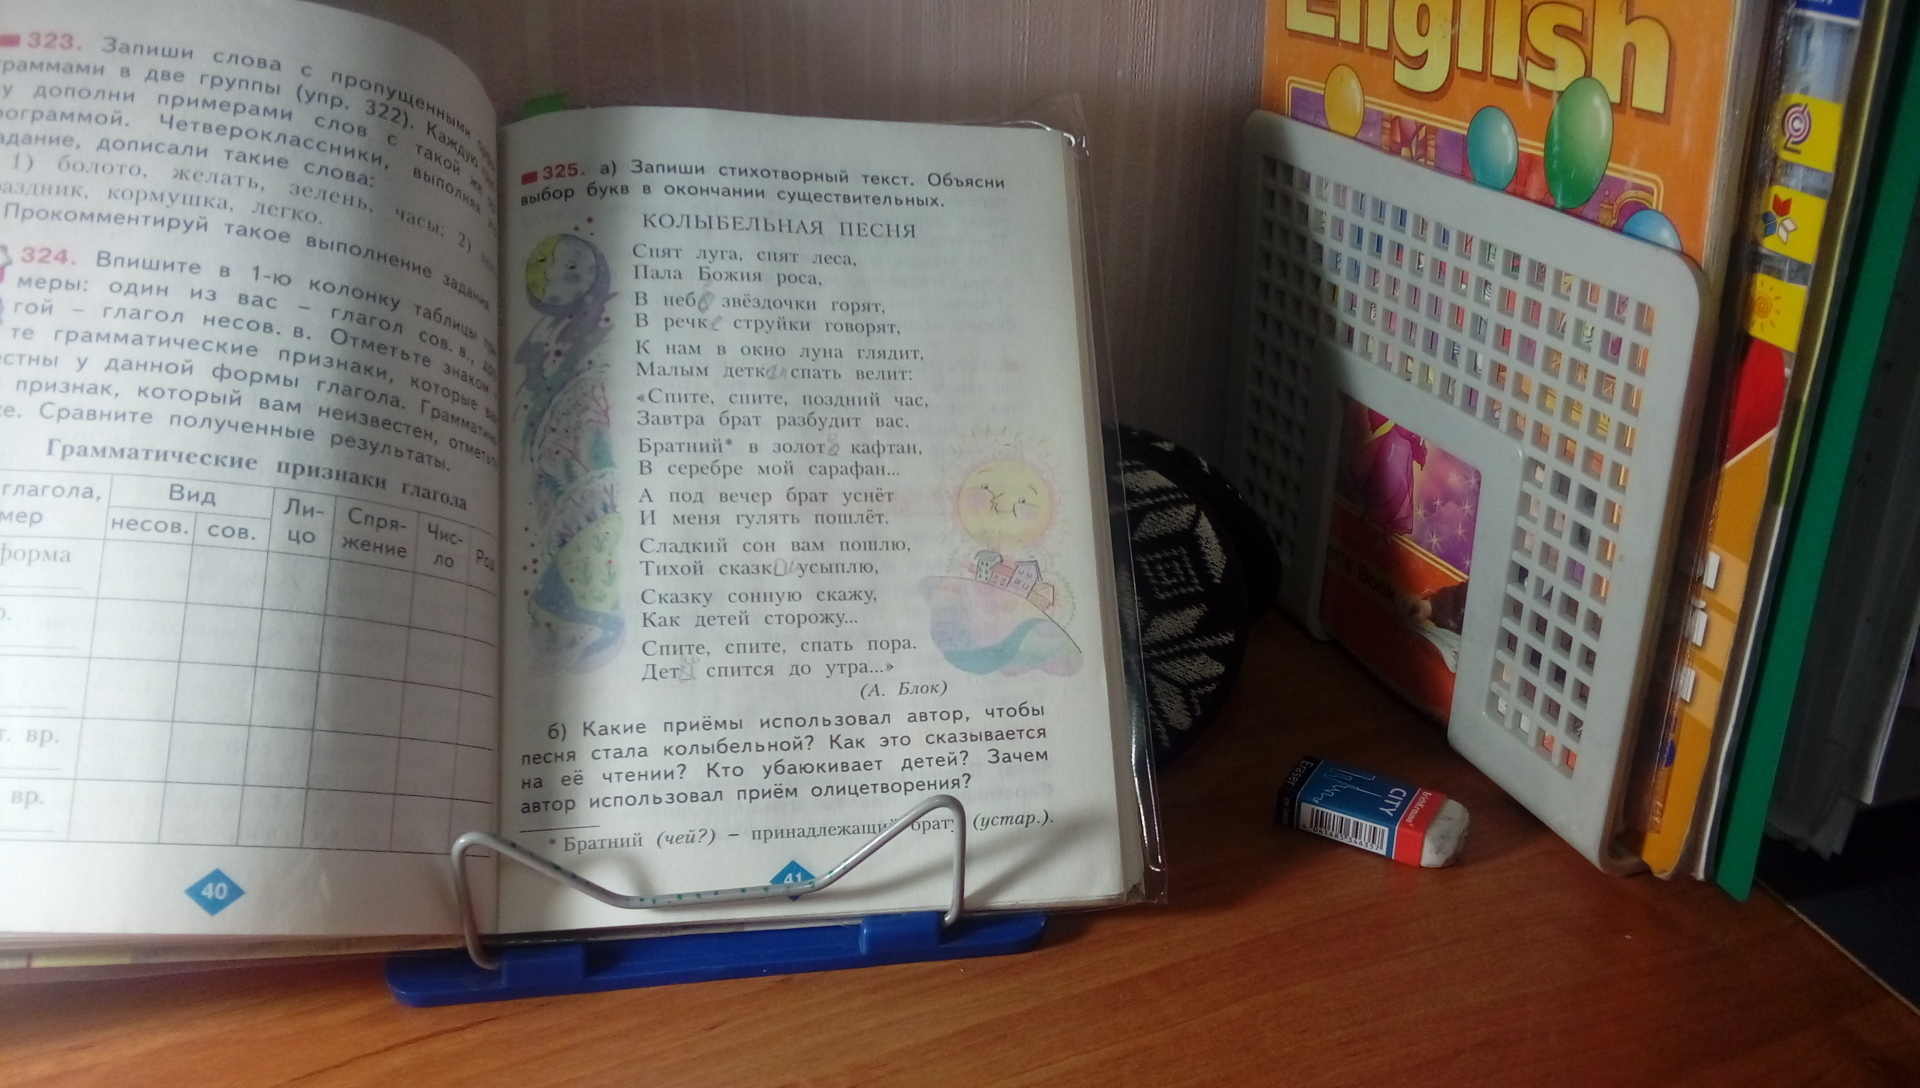 323. Запиши слова с пропущенными
граммами в две группы (упр. 322). Каждую
у дополни примерами слов с такой же
ограммой. Четвероклассники, выполняя
адание, дописали такие слова:
1) болото, желать, зелень, часы; 2)
аздник, кормушка, легко.
Прокомментируй такое выполнение задания
324. Впишите в 1-ю колонку таблицы при
меры: один из вас – глагол сов. в., дру
гой – глагол несов. в. Отметьте знаком
те грамматические признаки, которые вам
естны у данной формы глагола. Грамматиче
признак, который вам неизвестен, отметьте
же. Сравните полученные результаты.
Грамматические признаки глагола
глагола,
мер
Вид
несов.
сов.
Ли-
цо
Спря-
жение
Чис-
ло
Род
форма
р.
т. вр.
вр.
40
325. а) Запиши стихотворный текст. Объясни
выбор букв в окончании существительных.
КОЛЫБЕЛЬНАЯ ПЕСНЯ
Спят луга, спят леса,
Пала Божия роса,
В неб звёздочки горят,
В речк струйки говорят,
К нам в окно луна глядит,
Малым детк спать велит:
«Спите, спите, поздний час,
Завтра брат разбудит вас.
Братний* в золот кафтан,
В серебре мой сарафан...
А под вечер брат уснёт
И меня гулять пошлёт.
Сладкий сон вам пошлю,
Тихой сказк усыплю,
Сказку сонную скажу,
Как детей сторожу...
Спите, спите, спать пора.
Дет спится до утра...»
(А. Блок)
б) Какие приёмы использовал автор, чтобы
песня стала колыбельной? Как это сказывается
на её чтении? Кто убаюкивает детей? Зачем
автор использовал приём олицетворения?
* Братний (чей?) – принадлежащий брату (устар.).
41
English
Eraser
CITY